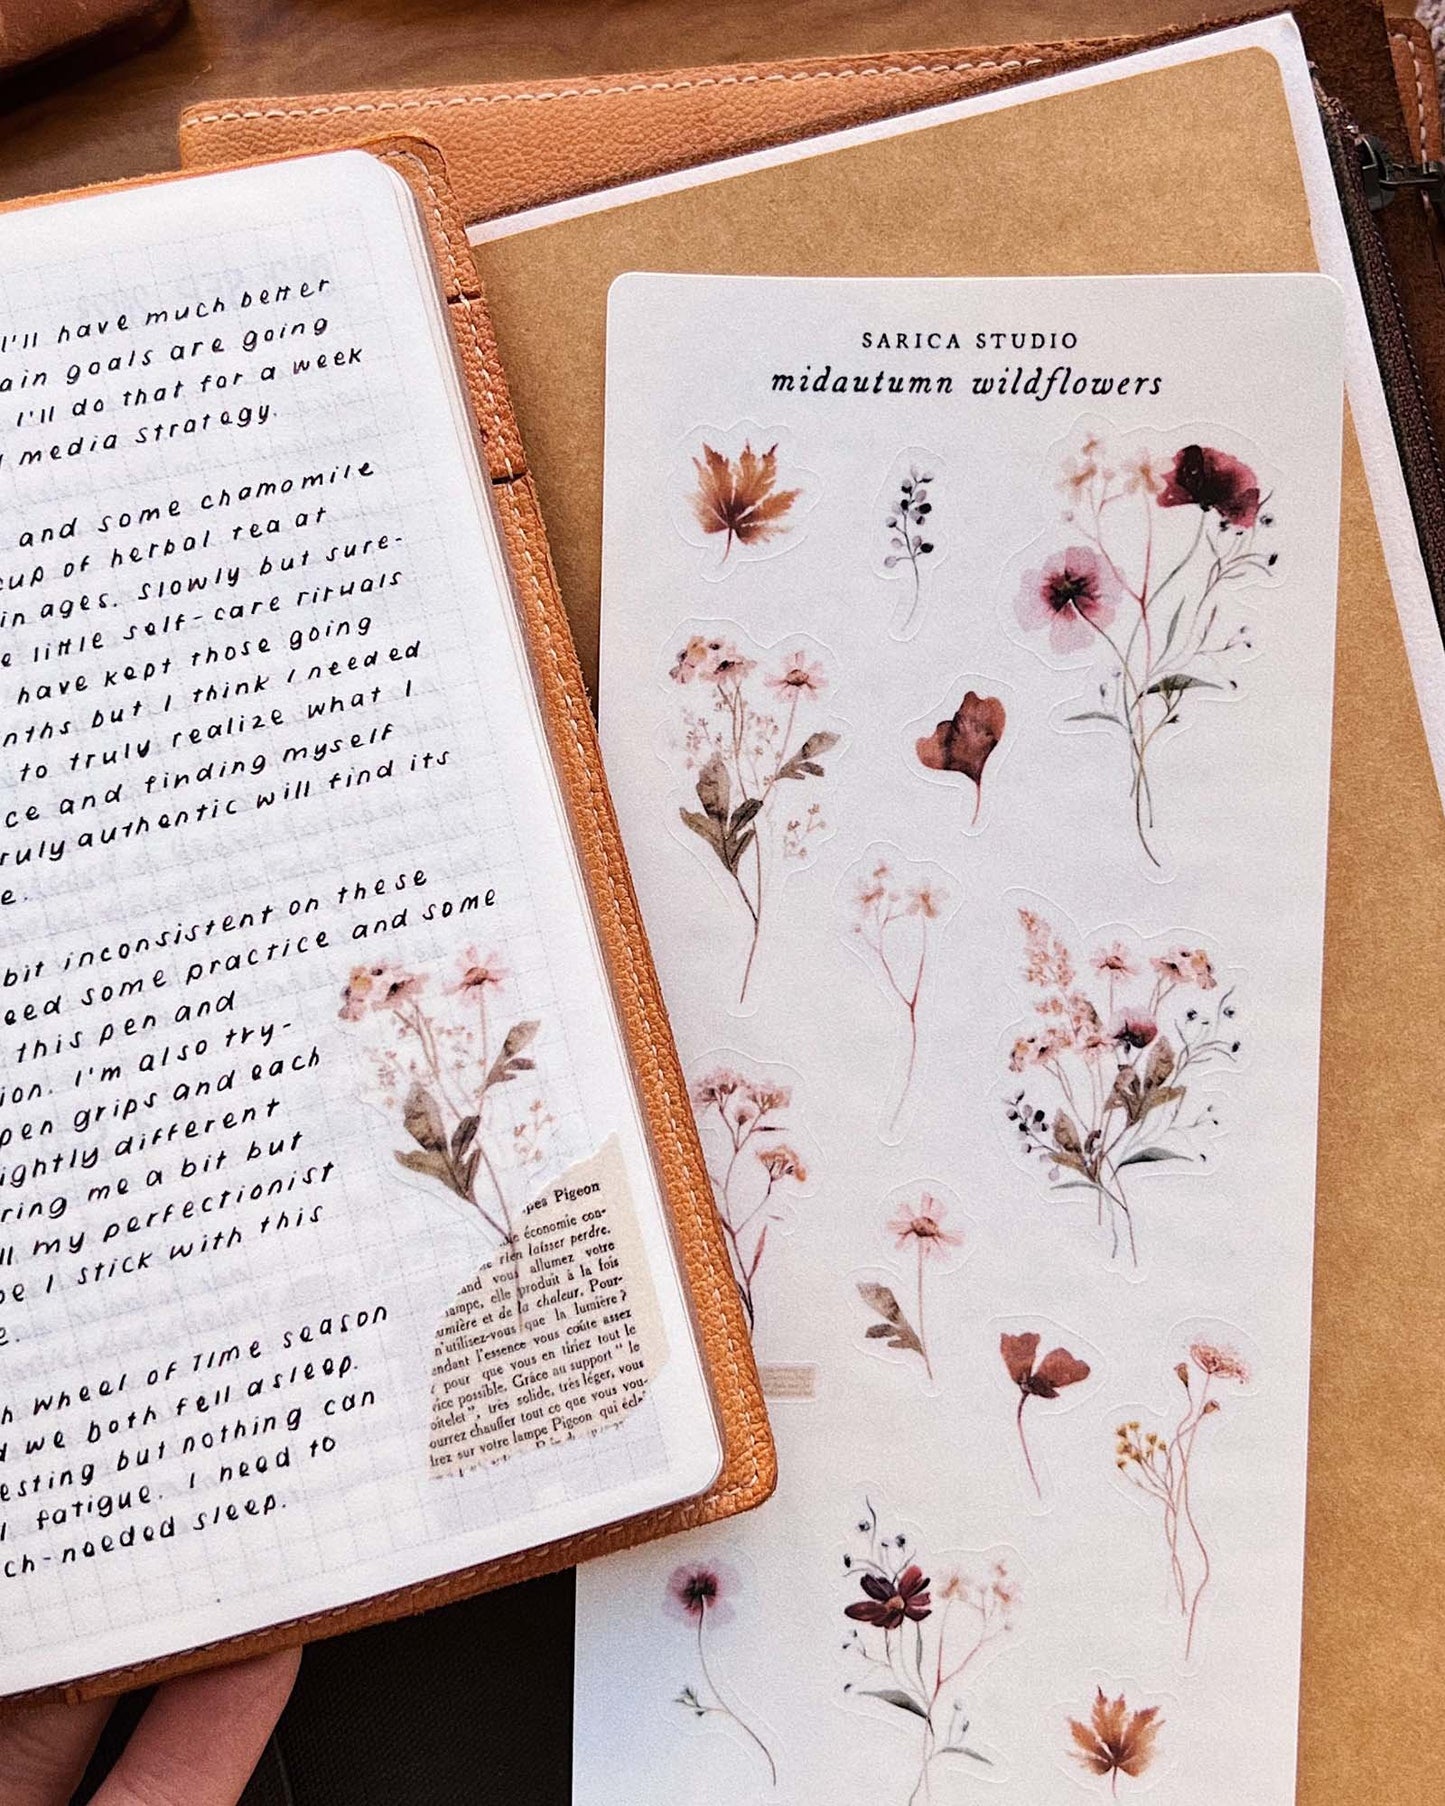 I'll have much better
ain goals are going
I'll do that for a week
media strategy.
and some chamomile
cup of herbal tea at
in ages. Slowly but sure-
e little self-care rituals
have kept those going
nths but I think I needed
to truly realize what I
ce and finding myself
ruly authentic will find its
e.
bit inconsistent on these
eed some practice and some
this pen and
ion. I'm also try-
pen grips and each
ightly different
ring me a bit but
ll my perfectionist
be I stick with this
e.
h Wheel of Time season
d we both fell asleep.
esting but nothing can
l fatigue. I need to
ch-needed sleep.
pes Pigeon
économie con-
rien laisser perdre.
and vous allumez votre
lampe, elle produit à la fois
umière et de la chaleur. Pour-
n'utilisez-vous que la lumière?
endant l'essence vous coûte assez
pour que vous en tiriez tout le
vice possible. Grâce au support "le
oitelet", très solide, très léger, vous
ourrez chauffer tout ce que vous vou-
drez sur votre lampe Pigeon qui écl
SARICA STUDIO
midautumn wildflowers